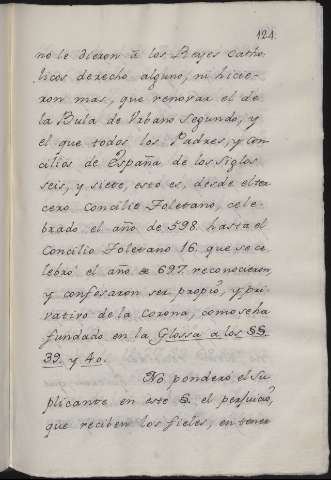 124.
no le dieron à los Reyes Catho-
licos derecho alguno, ni hicie-
ron mas, que renovar el de
la Bula de Urbano Segundo, y
el que todos los Padres, y Con-
cilios de España de los Siglos
seis, y siete, esto es, desde el ter-
cero Concilio Toletano, cele-
brado el año de 598. hasta el
Concilio Toletano 16. que se ce-
lebró el año de 697. reconocieron,
y confesaron ser propio, y pri-
vativo de la Corona, como se ha
fundado en la Glossa a los §§.
39. y 40.
No ponderó el Su-
plicante en este §. el perjuicio,
que reciben los fieles, en tener